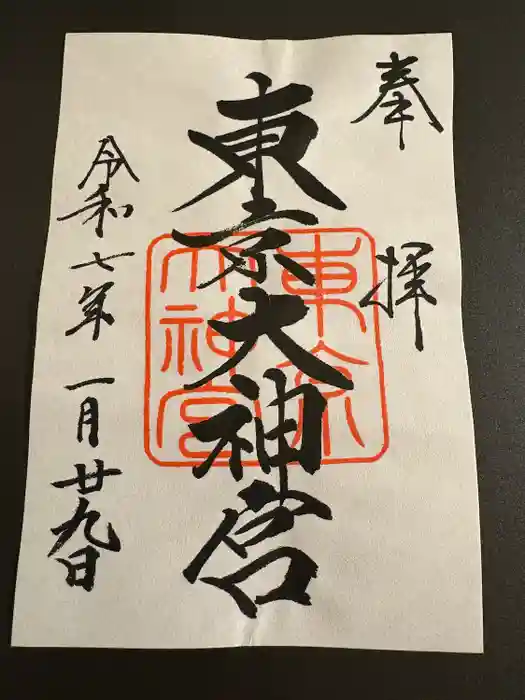 奉拝
東京大神宮
東京大神宮
令和七年一月廿九日